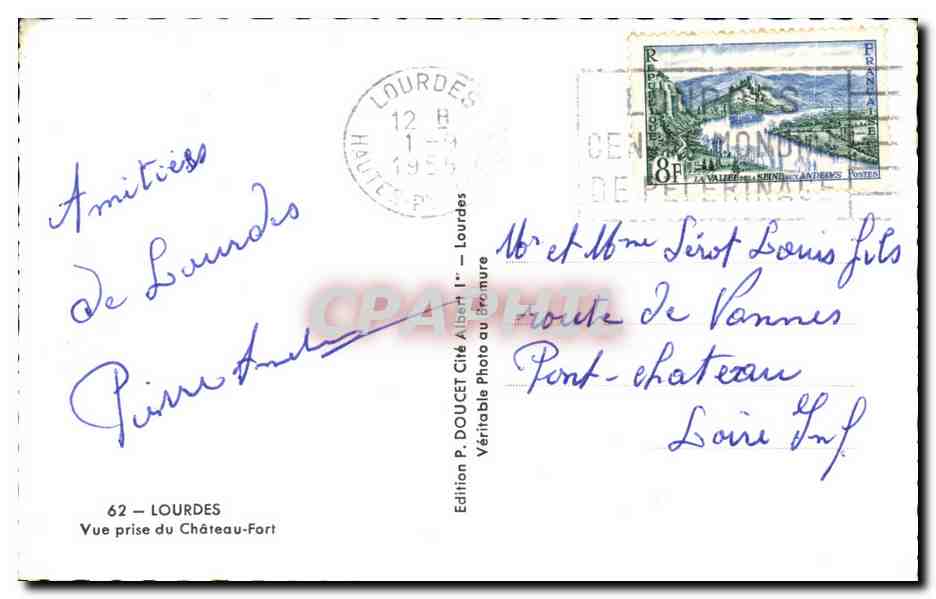 Amitiés
de Lourdes
Pierre
62 — LOURDES
Vue prise du Château-Fort
Edition P. DOUCET Cité Albert 1er — Lourdes
Véritable Photo au Bromure
LOURDES
12 H
1 - 9
HAUTES-P
REPUBLIQUE FRANCAISE
8F
LA VALLÉE DE LA SEINE AUX ANDELYS POSTES
LOURDES
CENTRE MONDIAL
DE PELERINAGE
Mr et Mme Sérot Louis fils
route de Vannes
Pont-chateau
Loire Inf
CPAPHIL